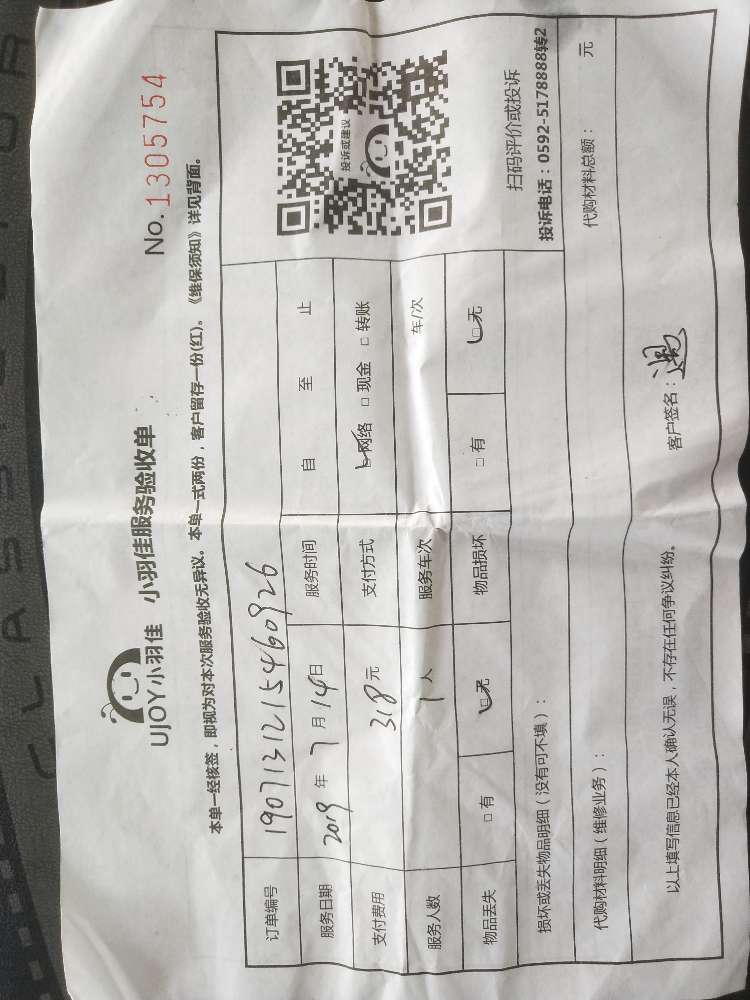 UJOY小羽佳 小羽佳服务验收单 No.1305754
本单一经核签，即视为对本次服务验收无异议。本单一式两份，客户留存一份(红)。《维保须知》详见背面。
订单编号 1907131215460926
服务日期 2019 年 7 月 14 日 服务时间 自 至 止
支付费用 318 元 支付方式 □网络 □现金 □转账
服务人数 1 人 服务车次 车/次
物品丢失 □有 □无 物品损坏 □有 □无
投诉或建议
扫码评价或投诉
投诉电话：0592-5178888转2
损坏或丢失物品明细（没有可不填）：
代购材料明细（维修业务）： 代购材料总额： 元
以上填写信息已经本人确认无误，不存在任何争议纠纷。 客户签名：